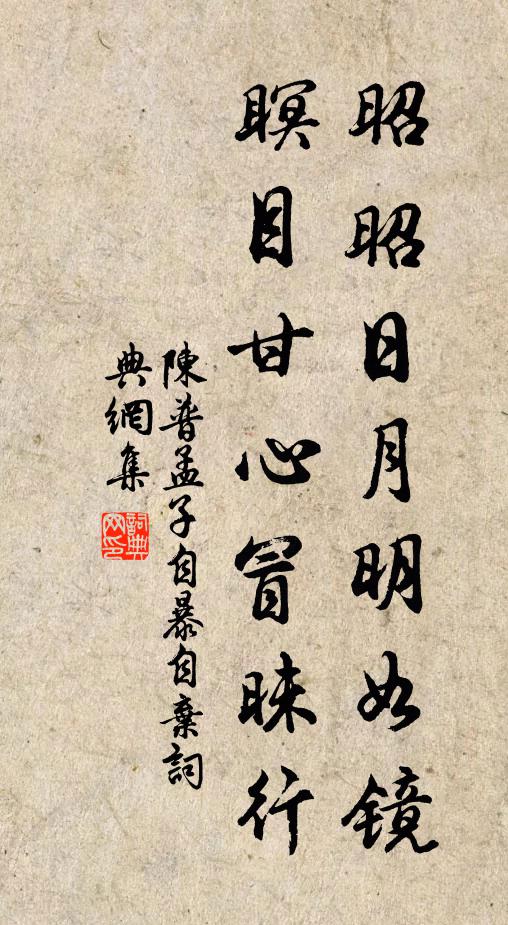 昭昭日月明如镜
瞑目甘心冒昧行
陳普孟子自暴自棄詞
典網集
詞典网印